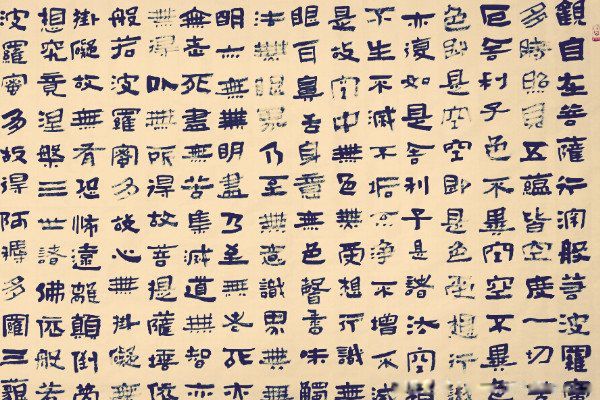 觀自在菩薩行深般若波羅蜜
多時照見五蘊皆空度一切苦
厄舍利子色不異空空不異色
色即是空空即是色受想行識
亦復如是舍利子是諸法空相
不生不滅不垢不淨不增不減
是故空中無色無受想行識無
眼耳鼻舌身意無色聲香味觸
法無眼界乃至無意識界無無
明亦無無明盡乃至無老死亦
無老死盡無苦集滅道無智亦
無得以無所得故菩提薩埵依
般若波羅蜜多故心無掛礙無
掛礙故無有恐怖遠離顛倒夢
想究竟涅槃三世諸佛依般若
波羅蜜多故得阿耨多羅三藐